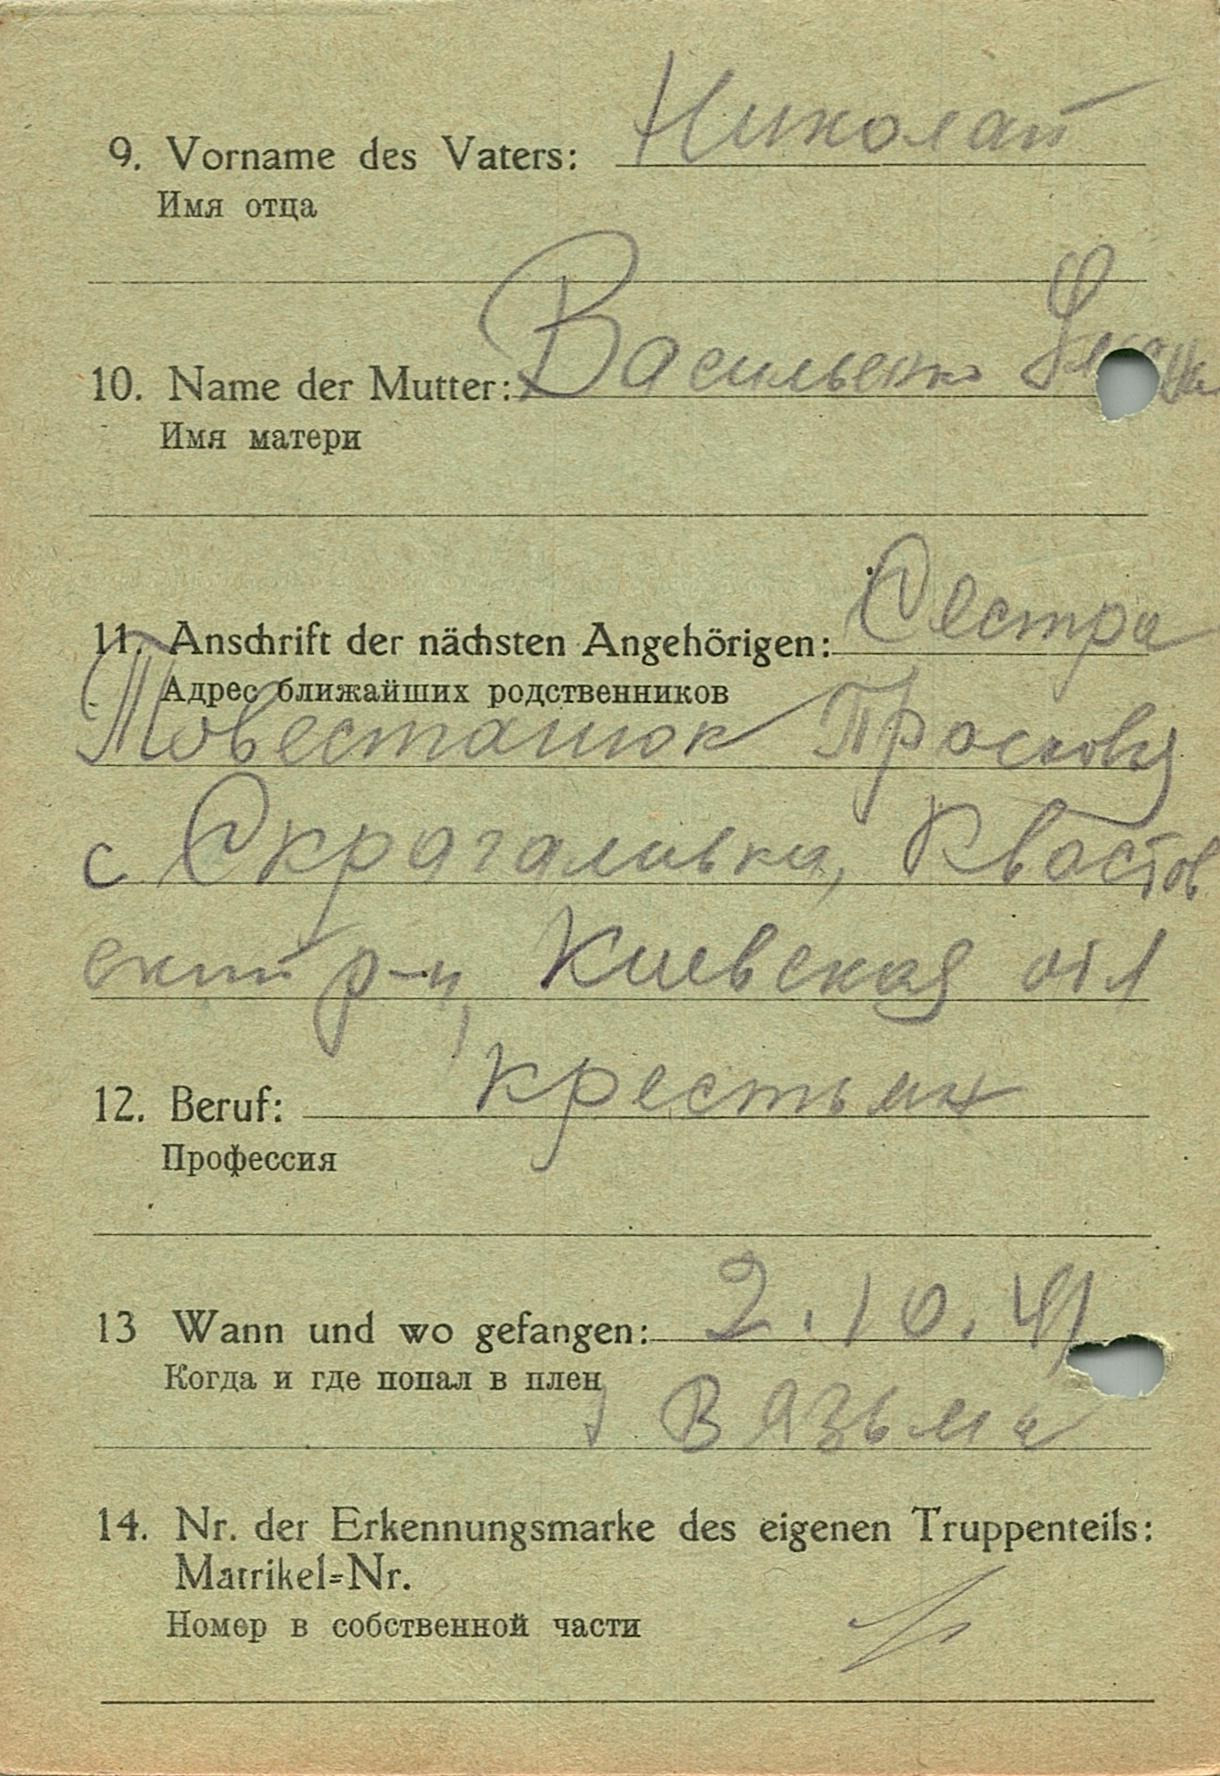 9. Vorname des Vaters: Николай
Имя отца
10. Name der Mutter: Василенко
Имя матери
11. Anschrift der nächsten Angehörigen: Сестра
Адрес ближайших родственников
Прасковя
с Скрагаливка, Квастов
ский р-н, Киевская обл
12. Beruf: крестьян
Профессия
13 Wann und wo gefangen: 2.10.41
Когда и где попал в плен
Вязьма
14. Nr. der Erkennungsmarke des eigenen Truppenteils:
Matrikel=Nr.
Номер в собственной части